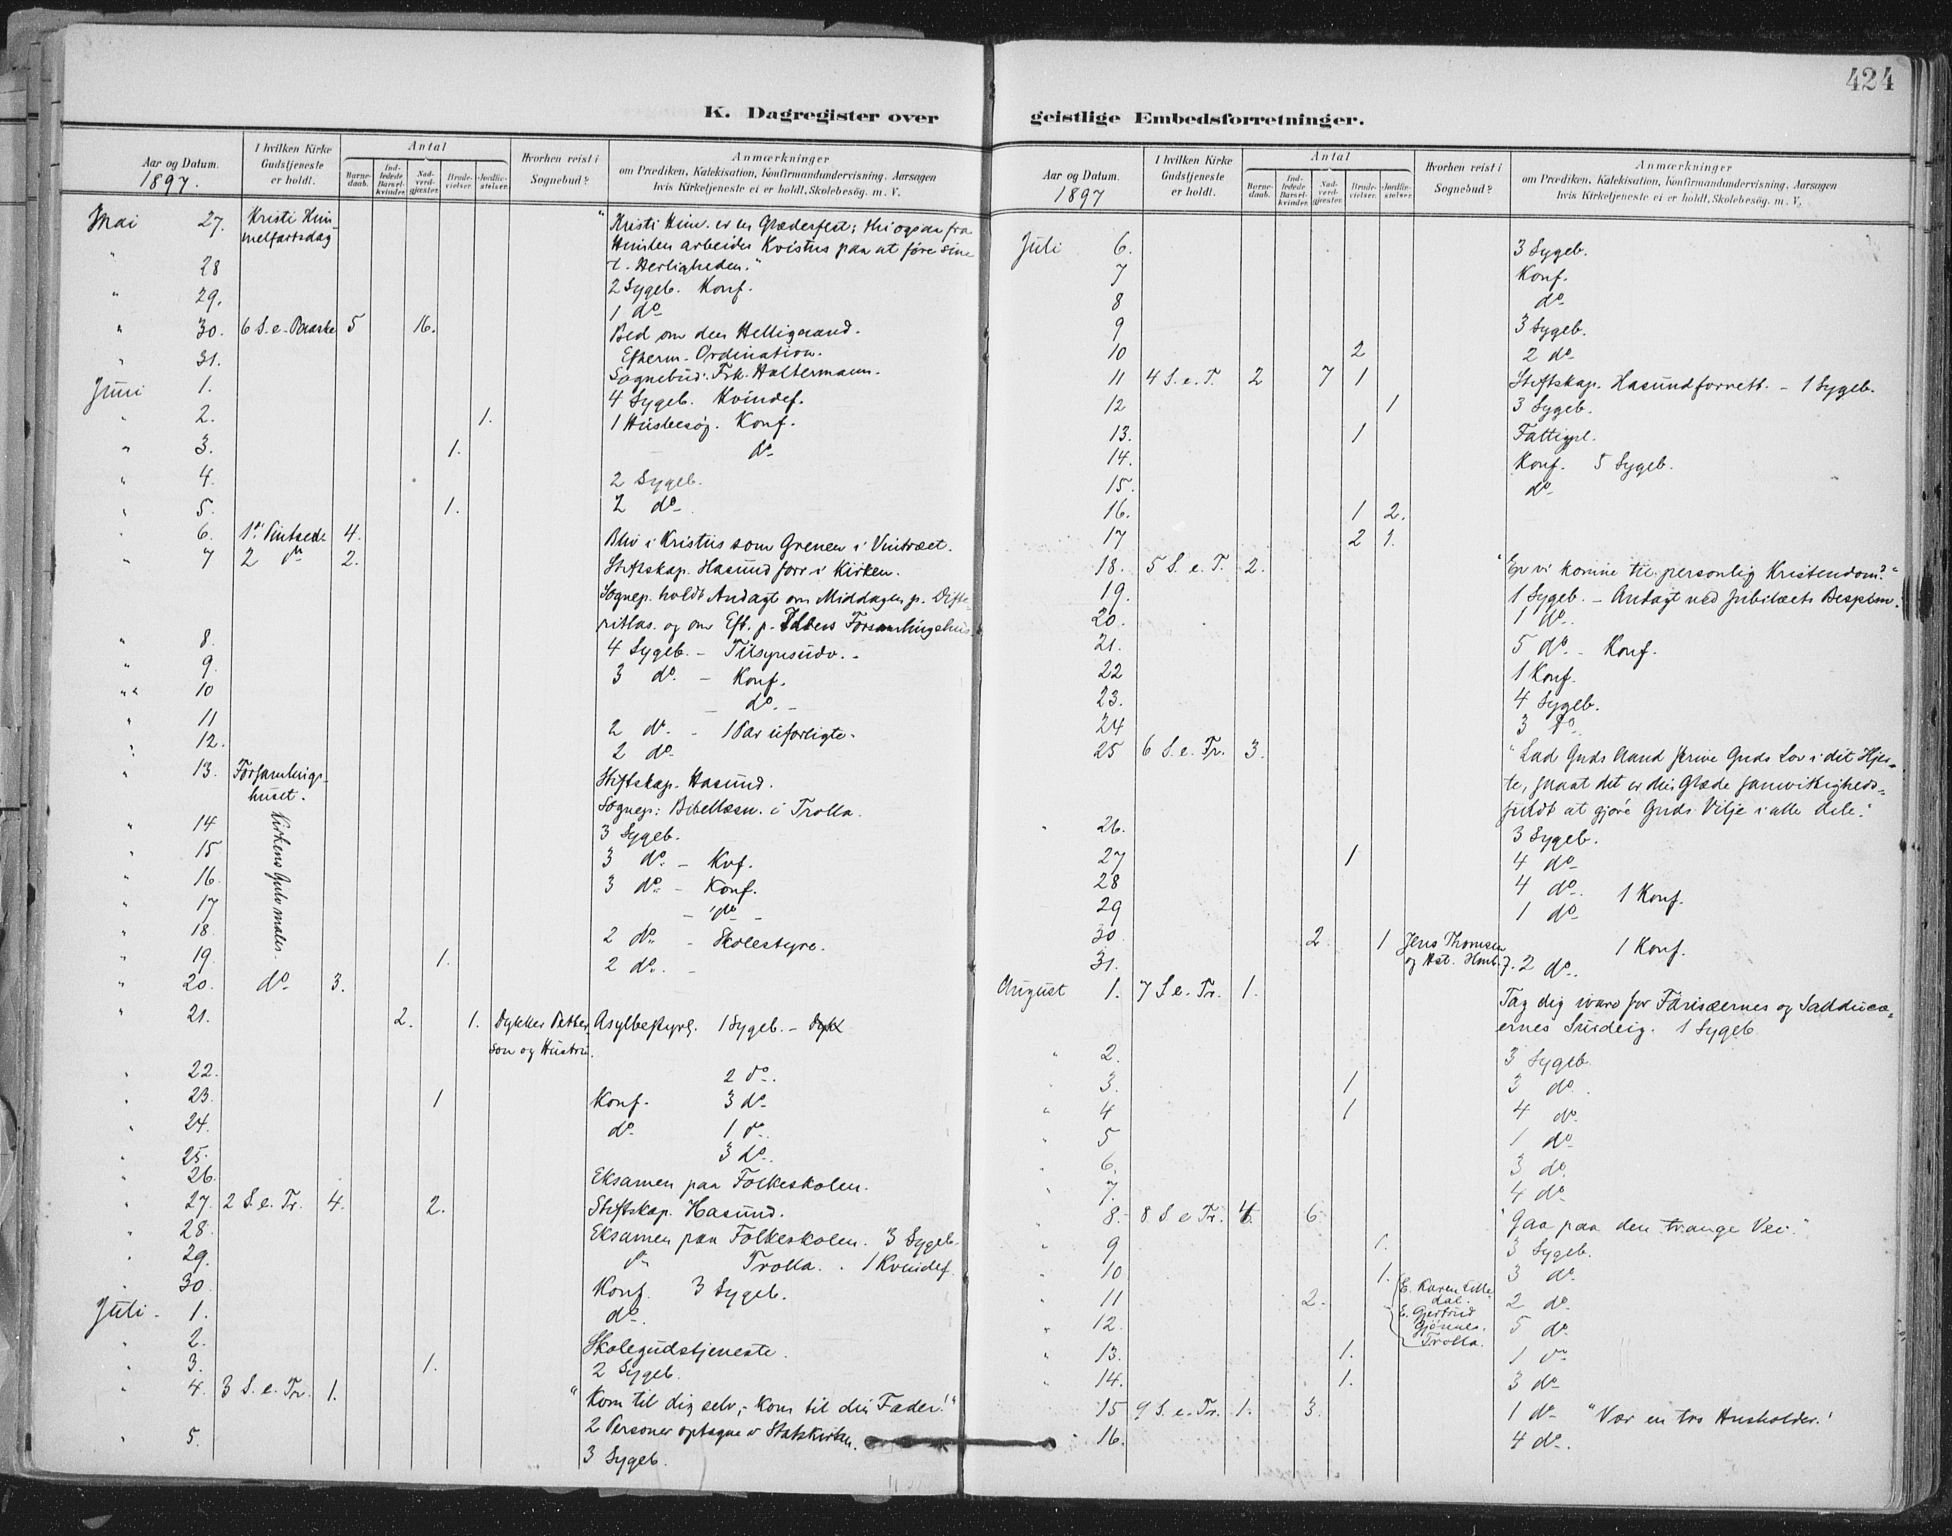 424
K. Dagregister over geistlige Embedsforretninger.
Aar og Datum. 1897.
I hvilken Kirke Gudstjeneste er holdt.
Antal
Barnedaab.
Indledede Barselkvinder.
Nadverdgjester.
Brudevielser.
Jordfæstelser.
Hvorhen reist i Sognebud?
Anmærkninger
om Prædiken, Katekisation, Konfirmandundervisning, Aarsagen
hvis Kirketjeneste ei er holdt, Skolebesøg. m. V.
Mai 27. Kristi Him "Kristi Him. er en Glæderfest; thi ogsaa fra
melfartsdag Himlen arbeider Kristus paa at føre sine
" 28 t. Herligheden."
2 Sygeb. Konf.
" 29. 1 do
" 30. 6 S. e. Paaske 5 16. Bed om den Helligaand.
Efterm. Ordination.
" 31. Sognebud: Frk. Haltermann.
Juni 1. 4 Sygeb. Kvindef.
" 2. 1. 1 Husbesøg. Konf.
" 3. 1. do
" 4. 2 Sygeb.
" 5. 1. 2 do
" 6. 1ste Pintsed. 4. Bliv i Kristus som Grenen i Vintræet.
" 7 2 do 2. Stiftskap. Hasund forr. i Kirken.
Sognep. holdt Andagt om Middagen p. Difte-
ritlas. og om Eft. p. Forsamlingshus.
" 8. 4 Sygeb. - Tilsynsudv. -
" 9. 3 do. - Konf.
" 10 - do. -
" 11 2 do. - 1 Par uforligte.
" 12. 2 do.
" 13. Forsamlings- Stiftskap. Hasund.
huset. Sognep: Bibellæsn. i Trolla.
" 14 Kirkens Gulv males. 3 Sygeb.
" 15 3 do. - Kof.
" 16. 3 do - Konf.
" 17 - do -
" 18. 2 do. - Skolestyre.
" 19. 1. 2 do. -
" 20. do. 3.
" 21. 2. 1. Dykker Petter Asylbestyr. 1 Sygeb. - Dykk
son og Hustru.
" 22. 2 do.
" 23. 1 Konf. 3 do
" 24. do. 1 do.
" 25. 3 do.
" 26. Eksamen paa Folkeskolen.
" 27. 2 S. e. Tr. 4. 2. Stiftskap. Hasund.
" 28. Eksamen paa Folkeskolen. 3 Sygeb.
" 29. do Trolla. . 1 Kvindef.
" 30. Konf. 3 Sygeb.
Juli. 1. do.
" 2. Skolegudstjeneste.
" 3. 1. 2 Sygeb.
" 4. 3 S. e. Tr. 1. "Kom til dig selv, - kom til din Fader!"
2 Personer optagne i Statskirken.
" 5. 3 Sygeb.
Aar og Datum. 1897
I hvilken Kirke Gudstjeneste er holdt.
Antal
Barnedaab.
Indledede Barselkvinder.
Nadverdgjester.
Brudevielser.
Jordfæstelser.
Hvorhen reist i Sognebud?
Anmærkninger
om Prædiken, Katekisation, Konfirmandundervisning, Aarsagen
hvis Kirketjeneste ei er holdt, Skolebesøg. m. V.
Juli 6. 3 Sygeb.
7 Konf.
8 do
9 3 Sygeb.
10 2 2 do
11 4 S. e. T. 2 7 1 Stiftskap. Hasund forrett. - 1 Sygeb.
12 1 3 Sygeb.
13. 1 Fattigpl.
14. Konf. 5 Sygeb.
15. do
16. 1 2.
17 2 1.
18. 5 S. e. T. 2. "Er vi komne til personlig Kristendom?"
19. 1 Sygeb. - Andagt ved Jubilæets Bespisn.
20. 1 do.
21. 5 do. - Konf.
22 1 Konf.
23. 4 Sygeb.
24 3 do
25 6 S. e. Tr. 3. "Lad Guds Aand skrive Guds Lov i dit Hjer-
te, saaat det er din Glæde samvittigheds-
fuldt at gjøre Guds Vilje i alle dele."
" 26. 3 Sygeb.
27 1 4 do
28 4 do. 1 Konf.
29 1 do
30. 2 1 Jens Thomsen 1 Konf.
31. og 2 do.
August 1. 7 S. e. Tr. 1. Tag dig ivare for Farisæernes og Sadducæ-
ernes Surdeig. 1 Sygeb.
" 2. 3 Sygeb.
" 3. 1 3 do.
" 4 1 4 do.
" 5 1 do
" 6. 3 do.
" 7. 4 do
" 8. 8 S e Tr. 4 6 "Gaa paa den trange Vei."
" 9 1. 3 Sygeb.
" 10 1. 3 do.
" 11 2. E. Karen Lille- 2 do.
dal.
" 12. E. Gjertrud 5 do.
Gjønnes.
Trolla.
" 13. 1. 1 do
" 14. 1. 3 do
" 15 9 S. e. Tr. 1. 3. 1 do "Vær en tro Husholder!
" 16. 4 do.